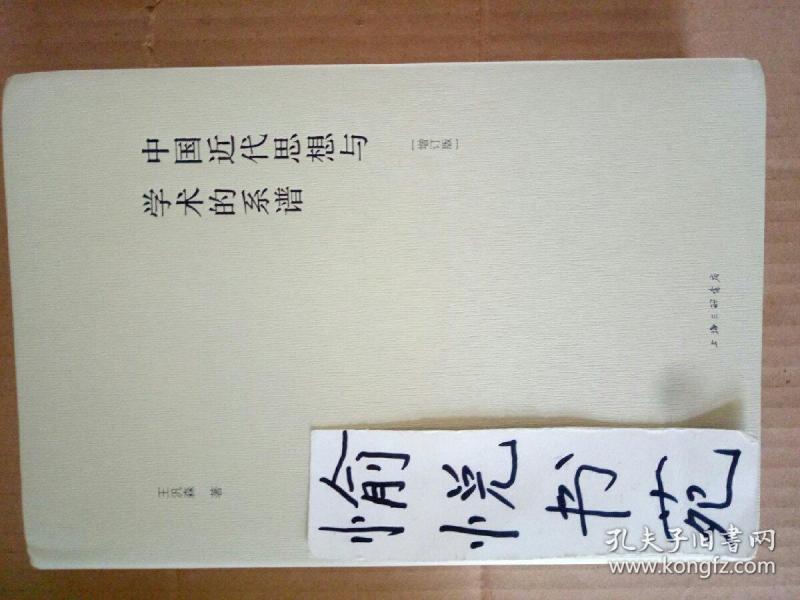 中国近代思想与
学术的系谱
[增订版]
王汎森 著
上海三联书店
愉悦书苑
孔夫子旧书网
www.kongfz.com